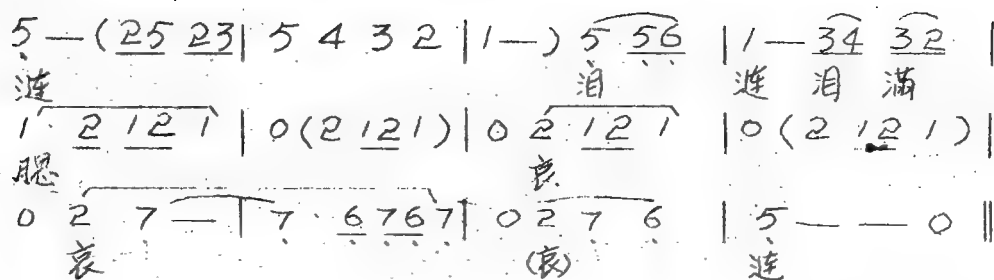 5 — ( 25 23 | 5 4 3 2 | 1 — ) 5 56 | 1 — 34 32 |
涟 泪 涟 泪 满
1· 2 12 1 | 0 ( 2 12 1 ) | 0 2 12 1 | 0 ( 2 12 1 ) |
腮 哀
0 2 7 — | 7· 6 76 7 | 0 2 7 6 | 5 — — 0 ‖
哀 (哀) 涟